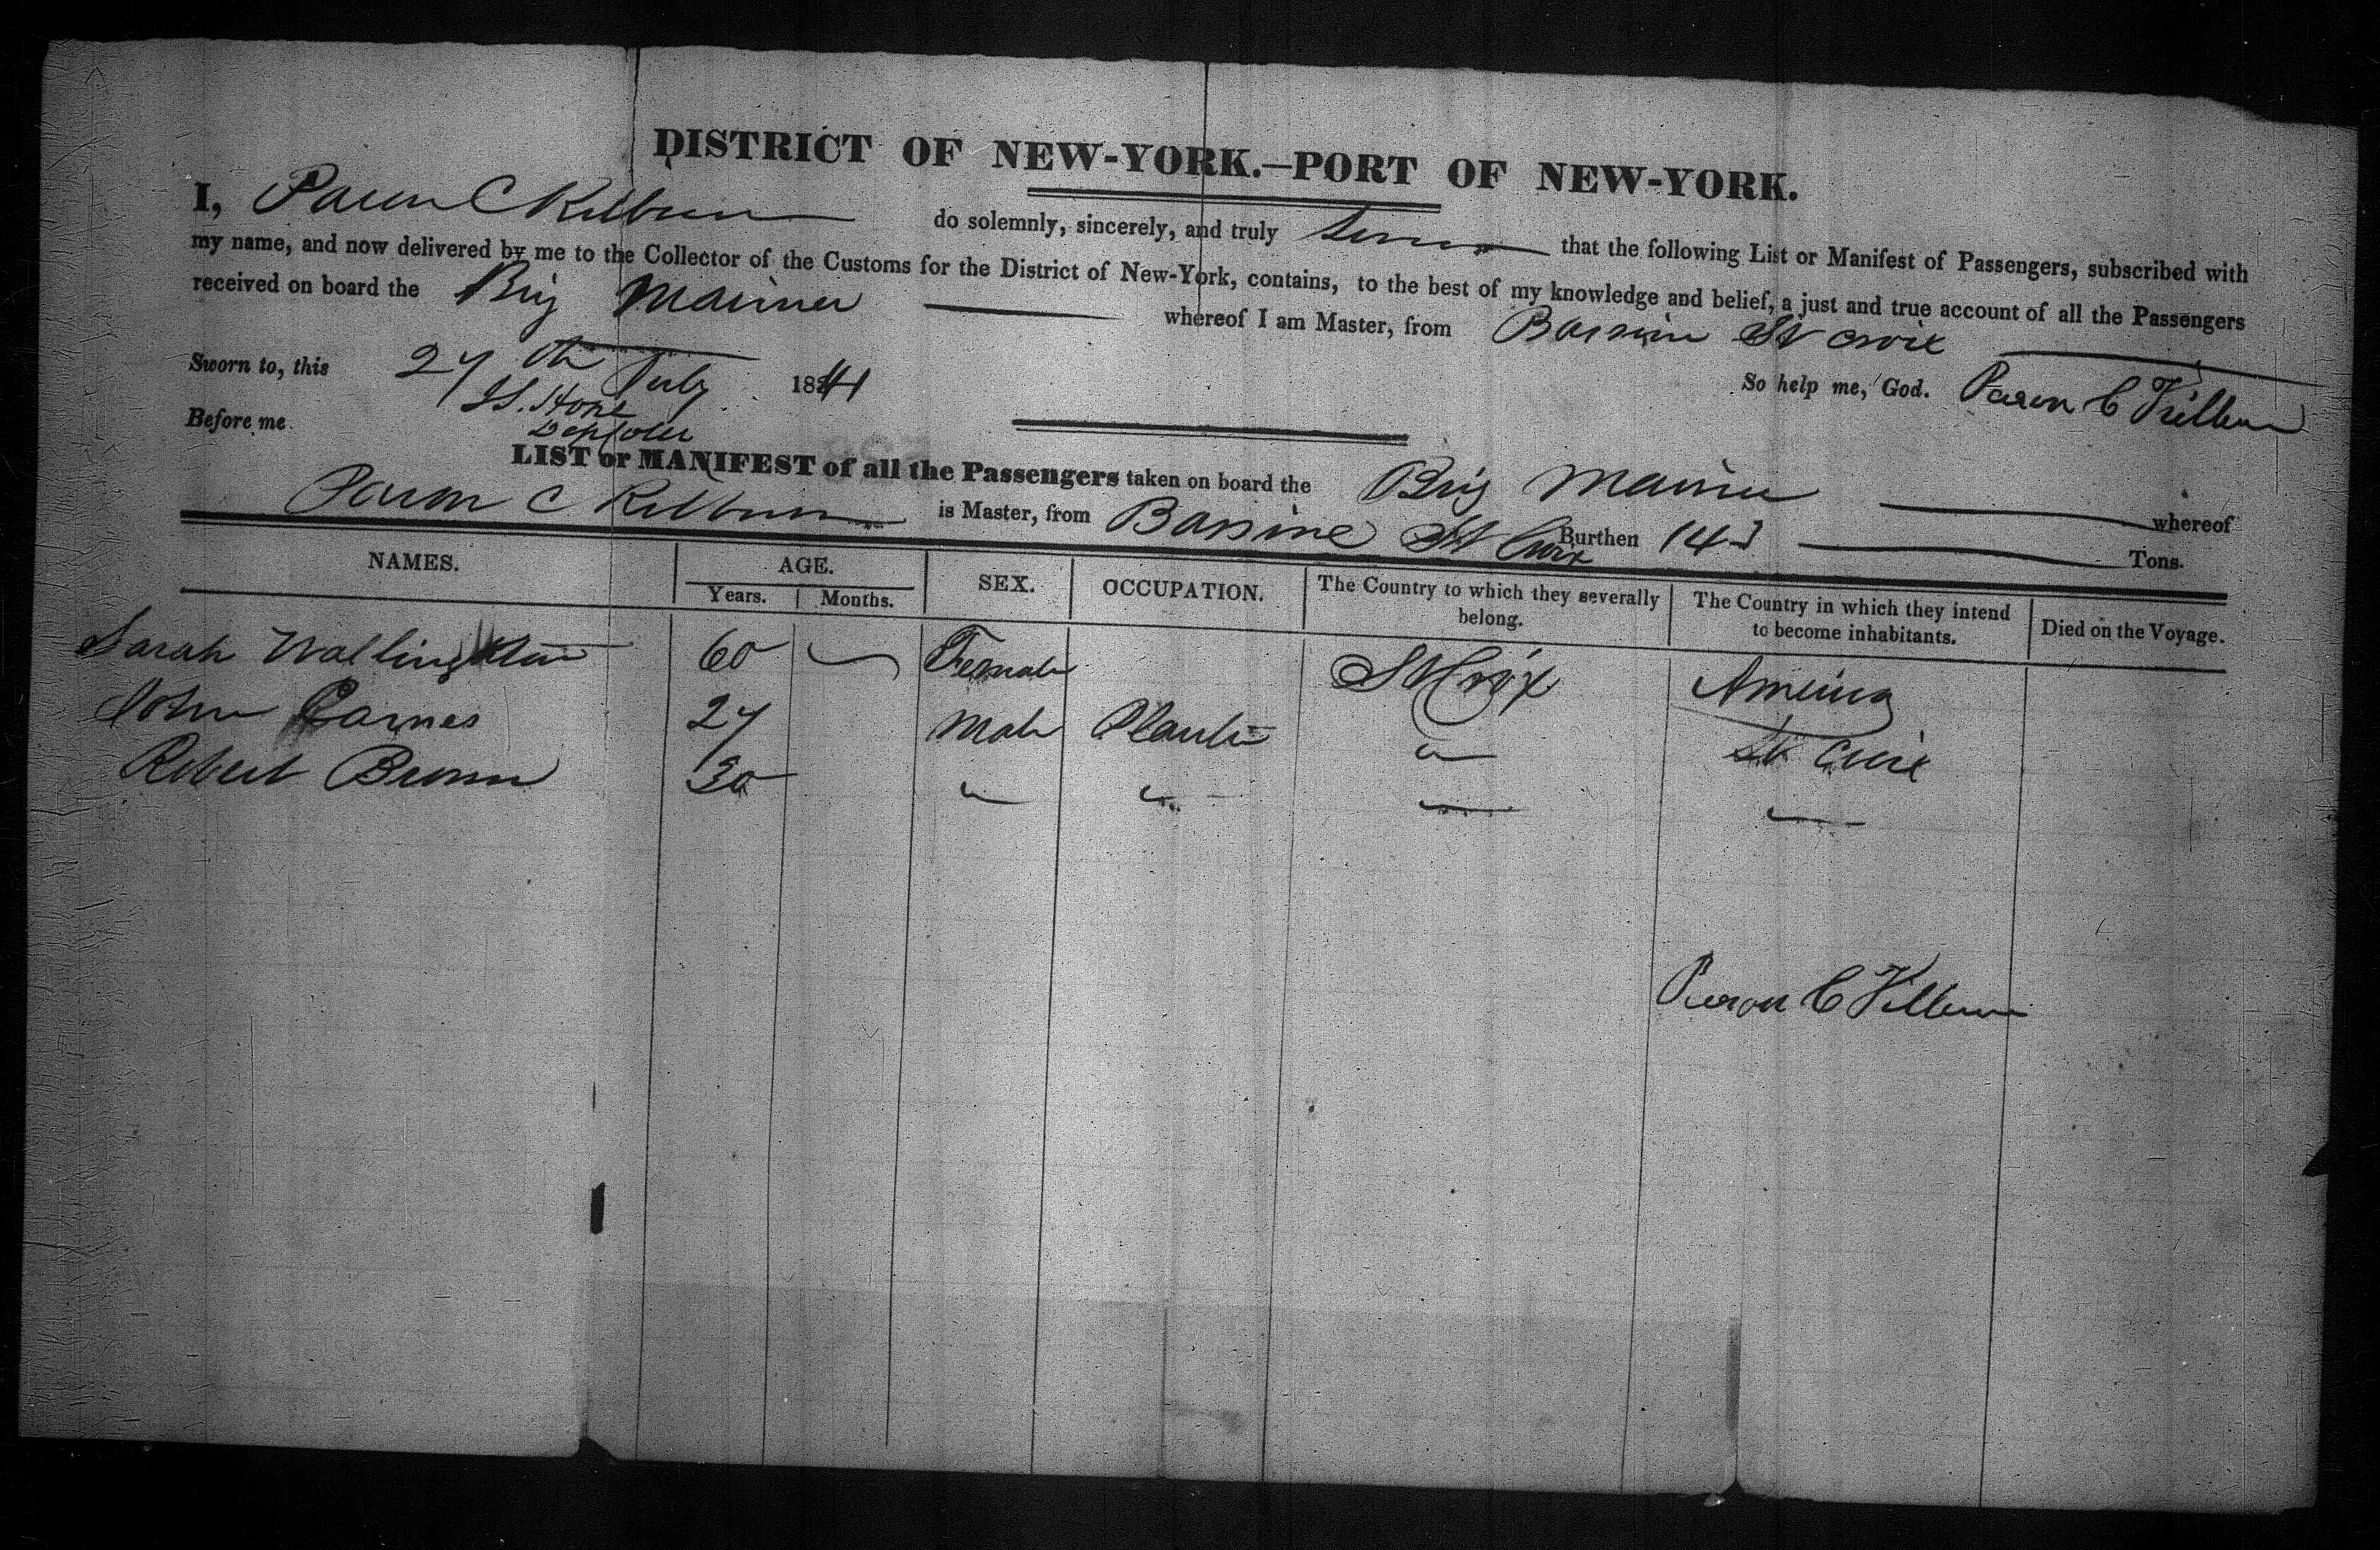 DISTRICT OF NEW-YORK.—PORT OF NEW-YORK.
I, C Kilburn do solemnly, sincerely, and truly swear that the following List or Manifest of Passengers, subscribed with
my name, and now delivered by me to the Collector of the Customs for the District of New-York, contains, to the best of my knowledge and belief, a just and true account of all the Passengers
received on board the Brig Mariner whereof I am Master, from Bassin St Croix
Sworn to, this 27th July 1841 So help me, God. C Kilburn
Before me
LIST or MANIFEST of all the Passengers taken on board the Brig Mariner whereof
C Kilburn is Master, from Bassine St Croix Burthen 143 Tons.
NAMES. AGE. SEX. OCCUPATION. The Country to which they severally belong. The Country in which they intend to become inhabitants. Died on the Voyage.
Years. Months.
Sarah Wallington 60 Female St Croix America
John 27 Male Planter " St Croix
Robert Brown 30 " " " "
C Kilburn